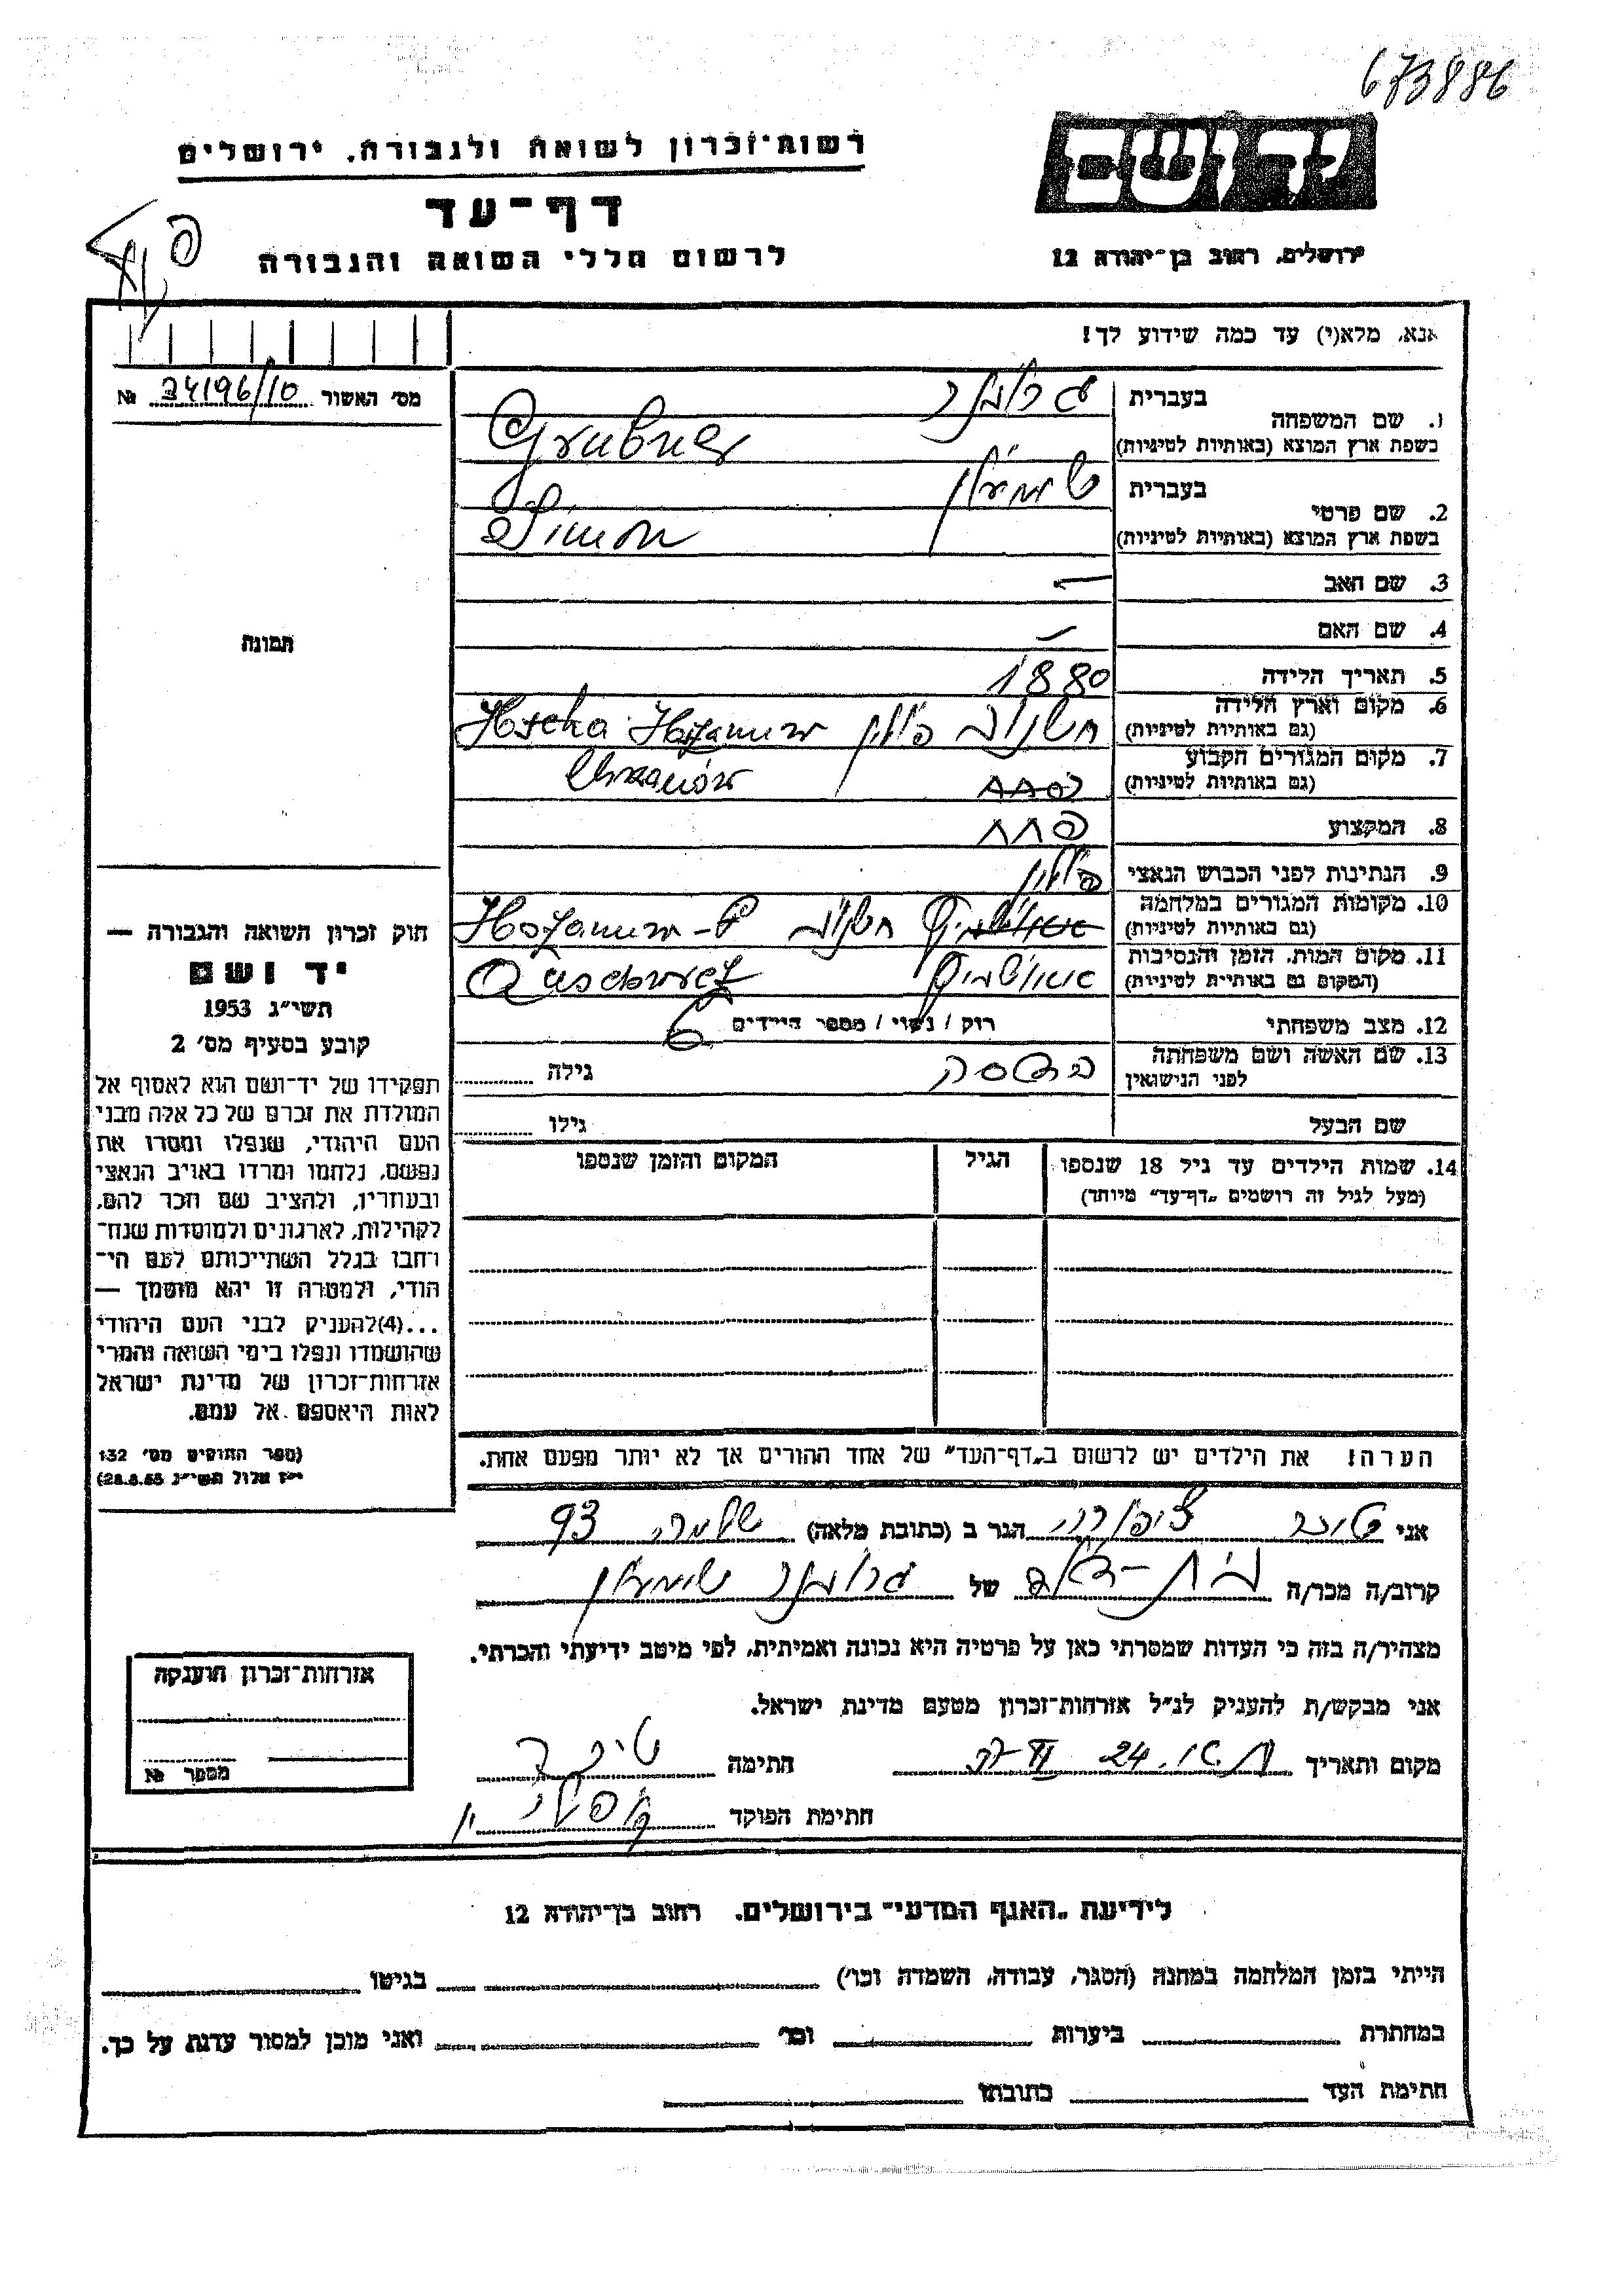 673886
רשות־זכרון לשואה ולגבורה, ירושלים
יד ושם
דף־עד
לרשום חללי השואה והגבורה
ירושלים, רחוב בן־יהודה 12
אנא, מלא(י) עד כמה שידוע לך!
מס׳ האשור 34196/10 №
1. שם המשפחה
בעברית גרובנר
בשפת ארץ המוצא (באותיות לטיניות) Grubner
2. שם פרטי
בעברית שמעון
בשפת ארץ המוצא (באותיות לטיניות) Simon
3. שם האב —
4. שם האם —
תמונה
5. תאריך הלידה 1880
6. מקום וארץ הלידה פולין
(גם באותיות לטיניות)
7. מקום המגורים הקבוע Chrzanów
(גם באותיות לטיניות)
8. המקצוע
9. הנתינות לפני הכבוש הנאצי פולין
10. מקומות המגורים במלחמה
(גם באותיות לטיניות)
11. מקום המות, הזמן והנסיבות אושויץ
(המקום גם באותיות לטיניות)
12. מצב משפחתי רוק / נשוי / מספר הילדים 6
13. שם האשה ושם משפחתה גילה
לפני הנישואין
שם הבעל גילו
14. שמות הילדים עד גיל 18 שנספו הגיל המקום והזמן שנספו
(מעל לגיל זה רושמים „דף־עד” מיוחד)
חוק זכרון השואה והגבורה —
יד ושם
תשי״ג 1953
קובע בסעיף מס׳ 2
תפקידו של יד־ושם הוא לאסוף אל
המולדת את זכרם של כל אלה מבני
העם היהודי, שנפלו ומסרו את
נפשם, נלחמו ומרדו באויב הנאצי
ובעוזריו, ולהציב שם וזכר להם,
לקהילות, לארגונים ולמוסדות שנח־
רחבו בגלל השתייכותם לעם הי־
הודי, ולמטרה זו יהא מוסמך —
...(4)להעניק לבני העם היהודי
שהושמדו ונפלו בימי השואה והמרי
אזרחות־זכרון של מדינת ישראל
לאות היאספם אל עמם.
(ספר החוקים מס׳ 132
י״ז אלול תשי״ג 28.8.53)
הערה! את הילדים יש לרשום ב„דף־העד” של אחד ההורים אך לא יותר מפעם אחת.
אני ציפורה הגר ב (כתובת מלאה) שלמה 93
קרוב/ה מכר/ה בת־דוד של גרובנר שמעון
מצהיר/ה בזה כי העדות שמסרתי כאן על פרטיה היא נכונה ואמיתית, לפי מיטב ידיעתי והכרתי.
אני מבקש/ת להעניק לנ״ל אזרחות־זכרון מטעם מדינת ישראל.
מקום ותאריך חתימה
חתימת הפוקד
אזרחות־זכרון הוענקה
מספר №
לידיעת „האגף המדעי” בירושלים, רחוב בן־יהודה 12
הייתי בזמן המלחמה במחנה (הסגר, עבודה, השמדה וכו׳) בגיטו
במחתרת ביערות וכו׳ ואני מוכן למסור עדות על כך.
חתימת העד כתובתו